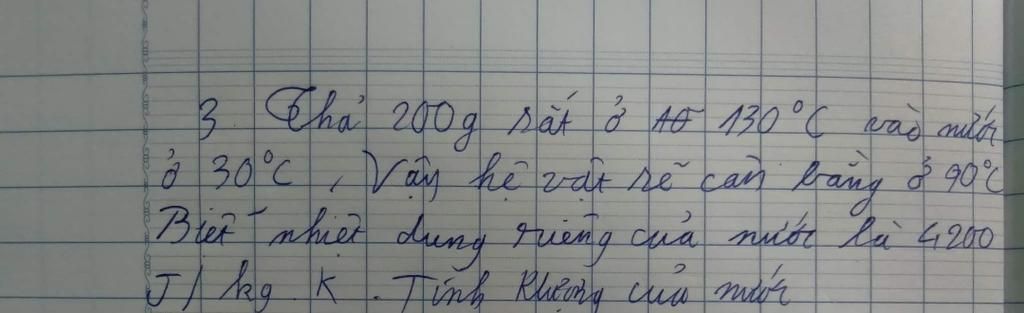 3 Thả 200g sắt ở 130°C vào nước
ở 30°C, Vậy hệ vật sẽ cân bằng ở 90°C
Biết nhiệt dung riêng của nước là 4200
J/kg.K. Tính Khlượng của nước